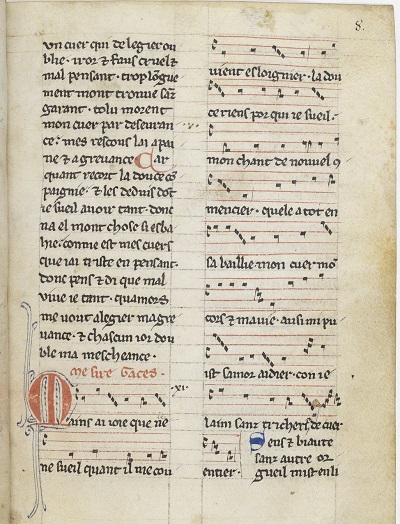 8.
vn cuer qui de legier ou
blie · iror & faus cruel &
mal pensant · trop lōgue
ment mont trouue sāz
garant · tolu morent
mon cuer par deseuran
ce · mes rescous lai a pai
ne & a greuance Car
quant recort la douce cō
paignie · & les deduis dōt
ie sueil auoir tant · donc
na el mont chose si esba
hie · comme est mes cuers
que iai triste en pensant ·
donc pens & di que mal
viue ie tant · quamors
me vout alegier ma gre
uance · & chascun ior dou
ble ma mescheance ·
me sire Gaces ·
.xi.
Mains ai ioie que ne
ne sueil quant il me cou
uient esloignier · la dou
ce riens por qui ie sueil ·
mon chant de nouuel 9
mencier · quele a tot en
sa baillie mon cuer mō
cors & ma uie · ausi mi pu
ist samor aidier · con ie
laim sanz trichers de cuer
entier ·
Sens & biaute
sanz autre or
gueil mist en li